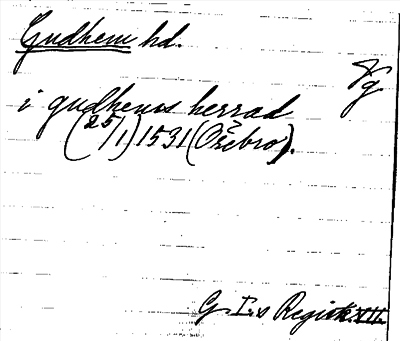 Gudhem hd.
Vg
i gudhems herrad
(25/1) 1531 (Örebro).
G. I:s Registr. VII.